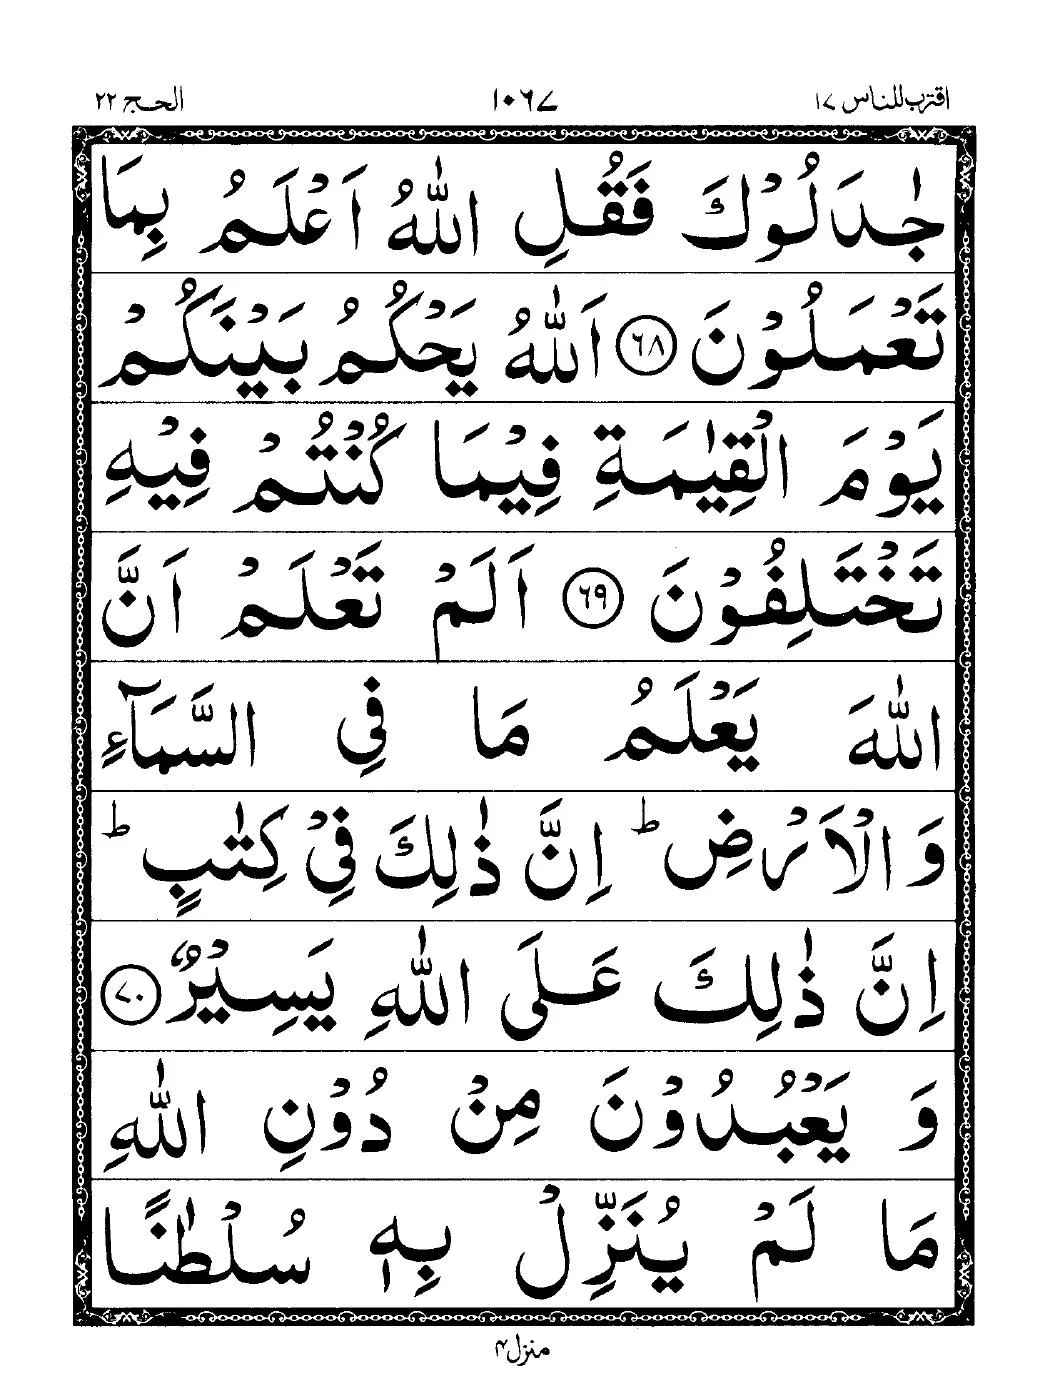 اقترب للناس ١٧ ١٠٦٧ الحج ٢٢
جٰدَلُوْكَ فَقُلِ اللّٰهُ اَعْلَمُ بِمَا
تَعْمَلُوْنَ ٦٨ اَللّٰهُ يَحْكُمُ بَيْنَكُمْ
يَوْمَ الْقِيٰمَةِ فِيْمَا كُنْتُمْ فِيْهِ
تَخْتَلِفُوْنَ ٦٩ اَلَمْ تَعْلَمْ اَنَّ
اللّٰهَ يَعْلَمُ مَا فِي السَّمَآءِ
وَالْاَرْضِ ؕ اِنَّ ذٰلِكَ فِيْ كِتٰبٍ ؕ
اِنَّ ذٰلِكَ عَلَى اللّٰهِ يَسِيْرٌ ٧٠
وَ يَعْبُدُوْنَ مِنْ دُوْنِ اللّٰهِ
مَا لَمْ يُنَزِّلْ بِهٖ سُلْطٰنًا
منزل ۴